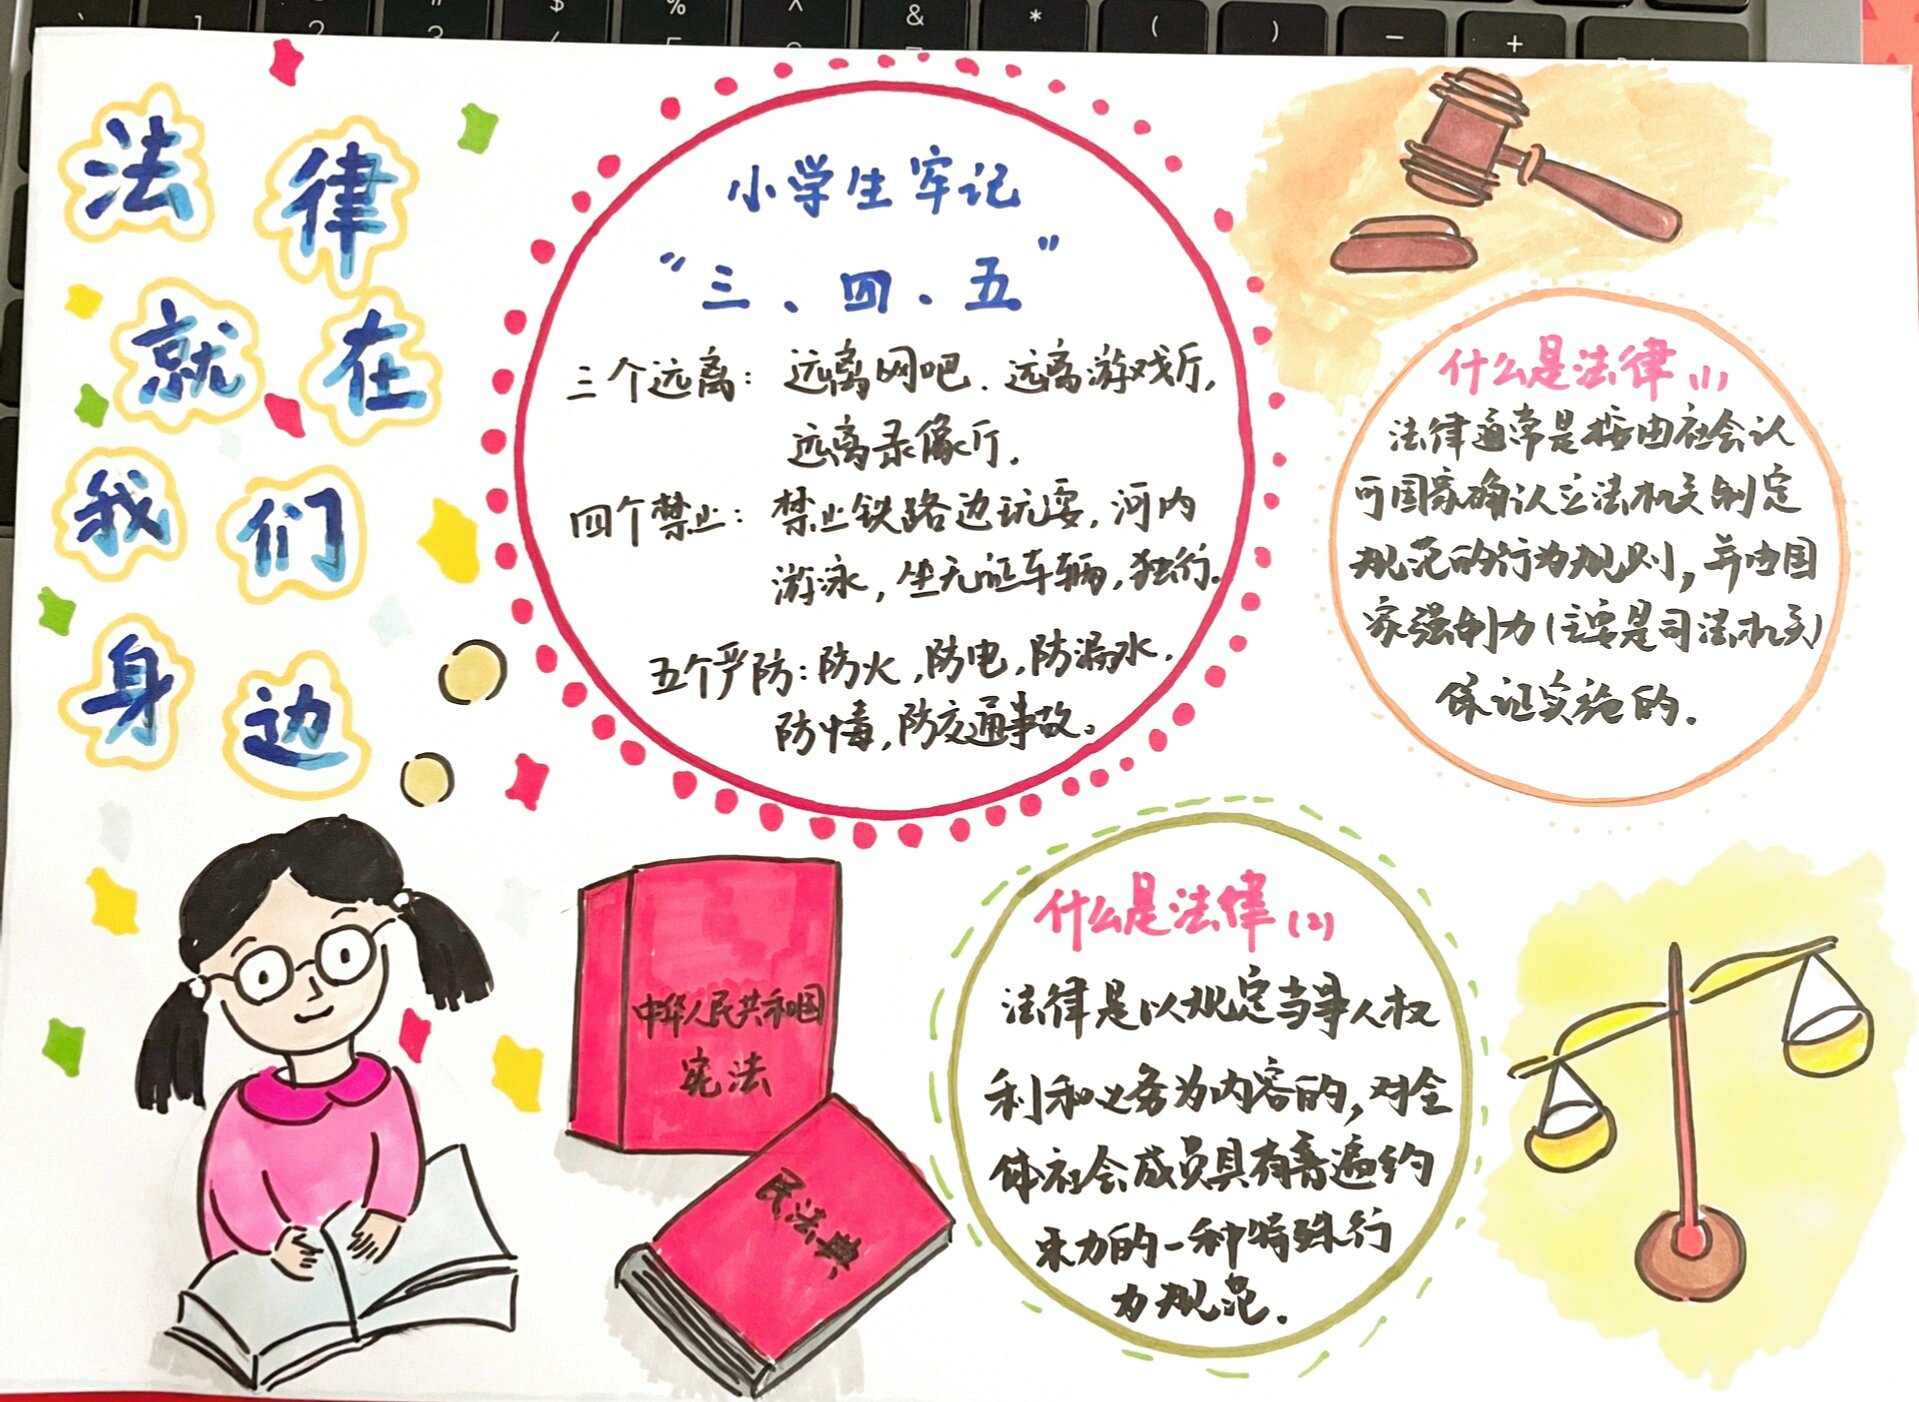 法律
就在
我们
身边
小学生牢记
“三、四、五”
三个远离：远离网吧．远离游戏厅，
远离录像厅．
四个禁止：禁止铁路边玩耍，河内
游泳，坐无证车辆，独行。
五个严防：防火，防电，防溺水，
防毒，防交通事故。
什么是法律(1)
法律通常是指由社会认
可国家确认立法机关制定
规范的行为规则，并由国
家强制力(主要是司法机关)
保证实施的．
什么是法律(2)
法律是以规定当事人权
利和义务为内容的，对全
体社会成员具有普遍约
束力的一种特殊行
为规范．
中华人民共和国
宪法
民法典
$ % ^ & * ( ) － +
1 2 3